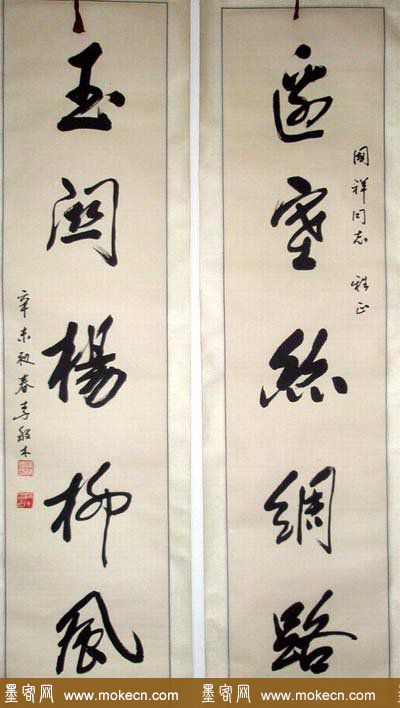 邊塞絲綢路
國祥同志 雅正
玉關楊柳風
辛未初春李般木
墨客网 www.mokecn.com 墨客网 www.mokecn.com